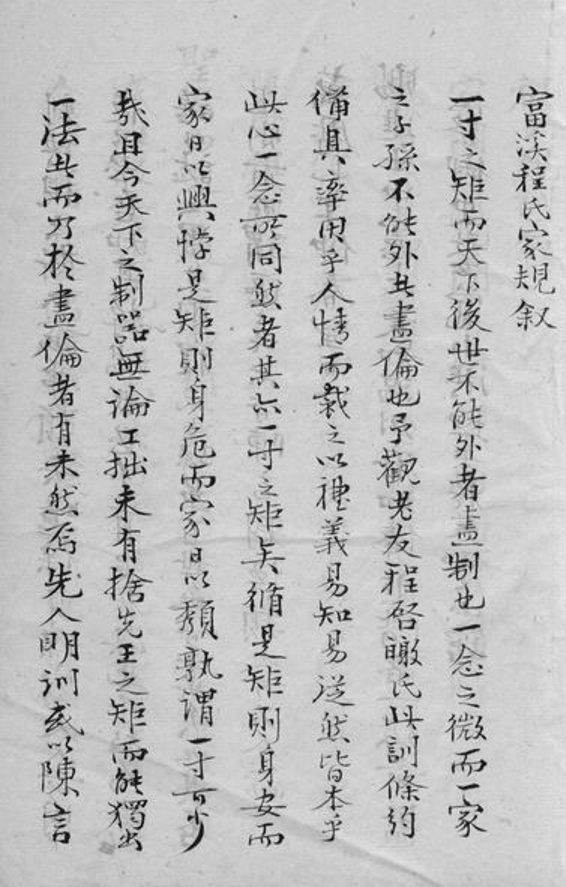 富溪程氏家規叙
一寸之矩而天下後世不能外者盡制也一念之微而一家
之子孫不能外者盡倫也予觀老友程啓暾氏此訓條約
備具率用乎人情而裁之以禮義易知易從然皆本乎
此心一念所同然者其亦一寸之矩矣循是矩則身安而
家日以興悖是矩則身危而家日以頹孰謂一寸可少
哉且今天下之制器無論工拙未有捨先王之矩而能獨出
一法者而乃於盡倫者有未然焉先人明訓或以陳言